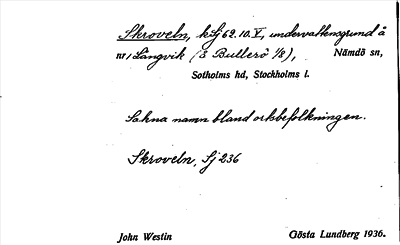 Skroveln, kSj 69.10.V, undervattensgrund å
nr 1 Långvik (S Bullerö 1/8), Nämdö sn,
Sotholms hd, Stockholms l.
Sakna namn bland ortsbefolkningen.
Skroveln, Sj 236
John Westin Gösta Lundberg 1936.